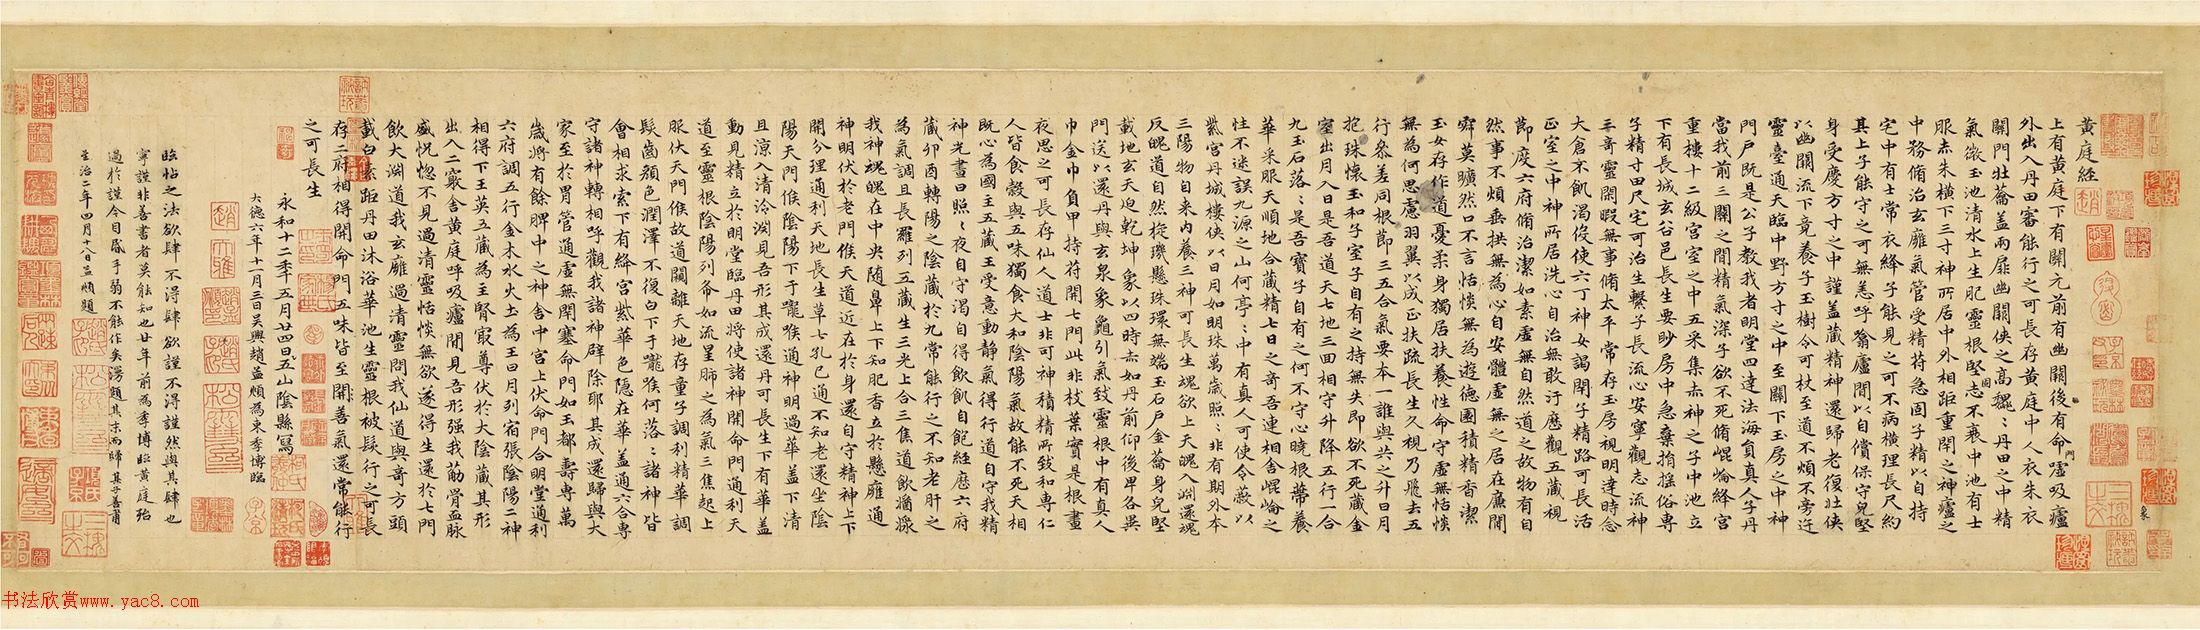 黃庭經
上有黃庭下有關元前有幽關後有命門噓吸廬
外出入丹田審能行之可長存黃庭中人衣朱衣
關門壯籥蓋兩扉幽關俠之高巍〻丹田之中精
氣微玉池清水上生肥靈根堅志不衰中池有士
服赤朱橫下三寸神所居中外相距重閉之神廬之
中務脩治玄廱氣管受精符急固子精以自持
宅中有士常衣絳子能見之可不病橫理長尺約
其上子能守之可無恙呼噏廬間以自償保守皃堅
身受慶方寸之中謹蓋藏精神還歸老復壯俠
以幽關流下竟養子玉樹令可杖至道不煩不旁迕
靈臺通天臨中野方寸之中至關下玉房之中神
門戶既是公子教我者明堂四達法海員真人子丹
當我前三關之間精氣深子欲不死脩崐崘絳宮
重樓十二級宮室之中五采集赤神之子中池立
下有長城玄谷邑長生要眇房中急棄捐搖俗專
子精寸田尺宅可治生繫子長流心安寧觀志流神
三奇靈閑暇無事脩太平常存玉房視明達時念
大倉不飢渴役使六丁神女謁閉子精路可長活
正室之中神所居洗心自治無敢汙歷觀五藏視
節度六府脩治潔如素虛無自然道之故物有自
然事不煩垂拱無為心自安體虛無之居在廉間
寂莫曠然口不言恬惔無為遊德園積精香潔
玉女存作道憂柔身獨居扶養性命守虛無恬惔
無為何思慮羽翼以成正扶疏長生久視乃飛去五
行參差同根節三五合氣要本一誰與共之升日月
抱珠懷玉和子室子自有之持無失即欲不死藏金
室出月入日是吾道天七地三回相守升降五行一合
九玉石落〻是吾寶子自有之何不守心曉根蒂養
華采服天順地合藏精七日之奇吾連相舍崐崘之
性不迷誤九源之山何亭〻中有真人可使令蔽以
紫宮丹城樓俠以日月如明珠萬歲照〻非有期外本
三陽物自來內養三神可長生魂欲上天魄入淵還魂
反魄道自然旋璣懸珠環無端玉石戶金籥身皃堅
載地玄天迫乾坤象以四時赤如丹前仰後卑各異
門送以還丹與玄泉象龜引氣致靈根中有真人
巾金巾負甲持符開七門此非枝葉實是根晝
夜思之可長存仙人道士非可神積精所致和專仁
人皆食穀與五味獨食大和陰陽氣故能不死天相
既心為國主五藏王受意動靜氣得行道自守我精
神光晝日照〻夜自守渴自得飲飢自飽經歷六府
藏卯酉轉陽之陰藏於九常能行之不知老肝之
為氣調且長羅列五藏生三光上合三焦道飲醬漿
我神魂魄在中央隨鼻上下知肥香立於懸雍通
神明伏於老門候天道近在於身還自守精神上下
開分理通利天地長生草七孔已通不知老還坐陰
陽天門候陰陽下于嚨喉通神明過華蓋下清
且涼入清泠淵見吾形其成還丹可長生下有華蓋
動見精立於明堂臨丹田將使諸神開命門通利天
道至靈根陰陽列布如流星肺之為氣三焦起上
服伏天門候故道闚離天地存童子調利精華調
髮齒顏色潤澤不復白下于嚨喉何落〻諸神皆
會相求索下有絳宮紫華色隱在華蓋通六合專
守諸神轉相呼觀我諸神辟除耶其成還歸與大
家至於胃管通虛無閉塞命門如玉都壽專萬
歲將有餘脾中之神舍中宮上伏命門合明堂通利
六府調五行金木水火土為王日月列宿張陰陽二神
相得下王英五藏為主腎最尊伏於大陰藏其形
出入二竅舍黃庭呼吸廬間見吾形強我筋骨血脉
盛怳惚不見過清靈恬惔無欲遂得生還於七門
飲大淵道我玄廱過清靈問我仙道與奇方頭
載白素距丹田沐浴華池生靈根被髮行之可長
存二府相得開命門五味皆至開善氣還常能行
之可長生
永和十二年五月廿四日五山陰縣寫
大德六年十一月三日吳興趙孟頫為東季博臨
臨帖之法欲肆不得肆欲謹不得謹然與其肆也
寧謹非善書者莫能知也廿年前為季博臨黃庭殆
過於謹今目昏手弱不能作矣漫題其末而歸其子善甫
至治二年四月十八日孟頫題
书法欣赏www.yac8.com